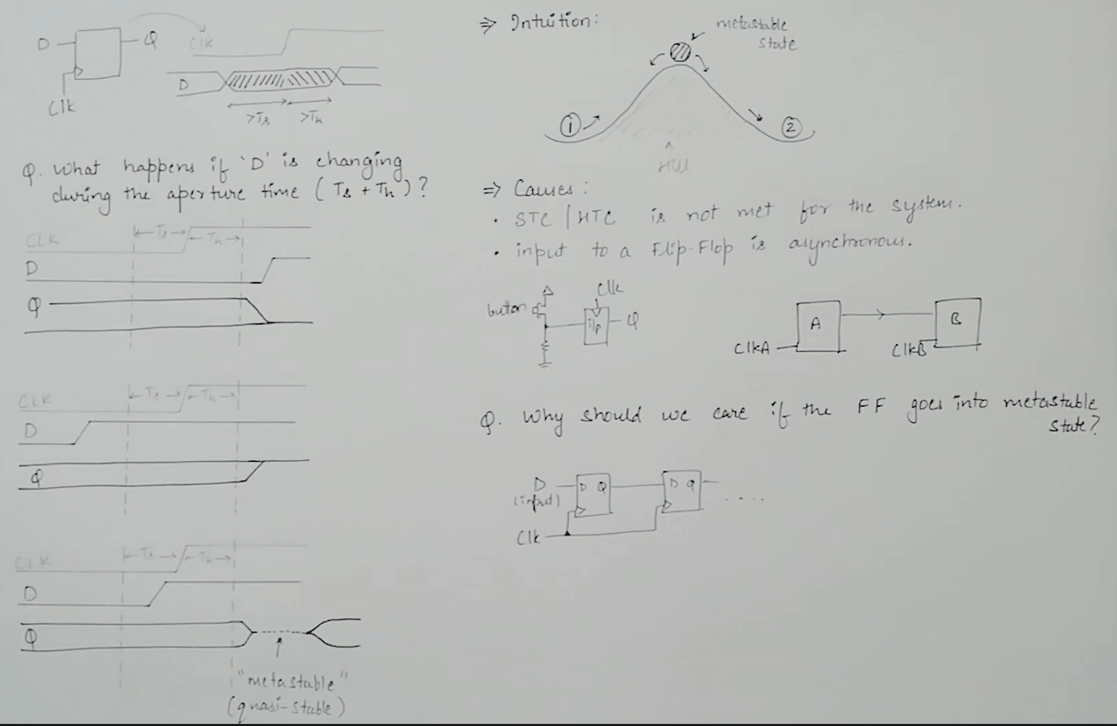 D
Q
Clk
Clk
D
>Ts
>Th
Q. What happens if 'D' is changing
during the aperture time (Ts + Th)?
CLK
Ts
Th
D
Q
CLK
Ts
Th
D
Q
CLK
Ts
Th
D
Q
"metastable"
(quasi-stable)
⇒ Intuition:
metastable
state
1
2
Hill
⇒ Causes:
• STC / HTC is not met for the system.
• input to a Flip-Flop is asynchronous.
button
Clk
i/p
Q
A
B
ClkA
ClkB
Q. Why should we care if the FF goes into metastable
state?
D
(input)
D Q
D Q
....
Clk